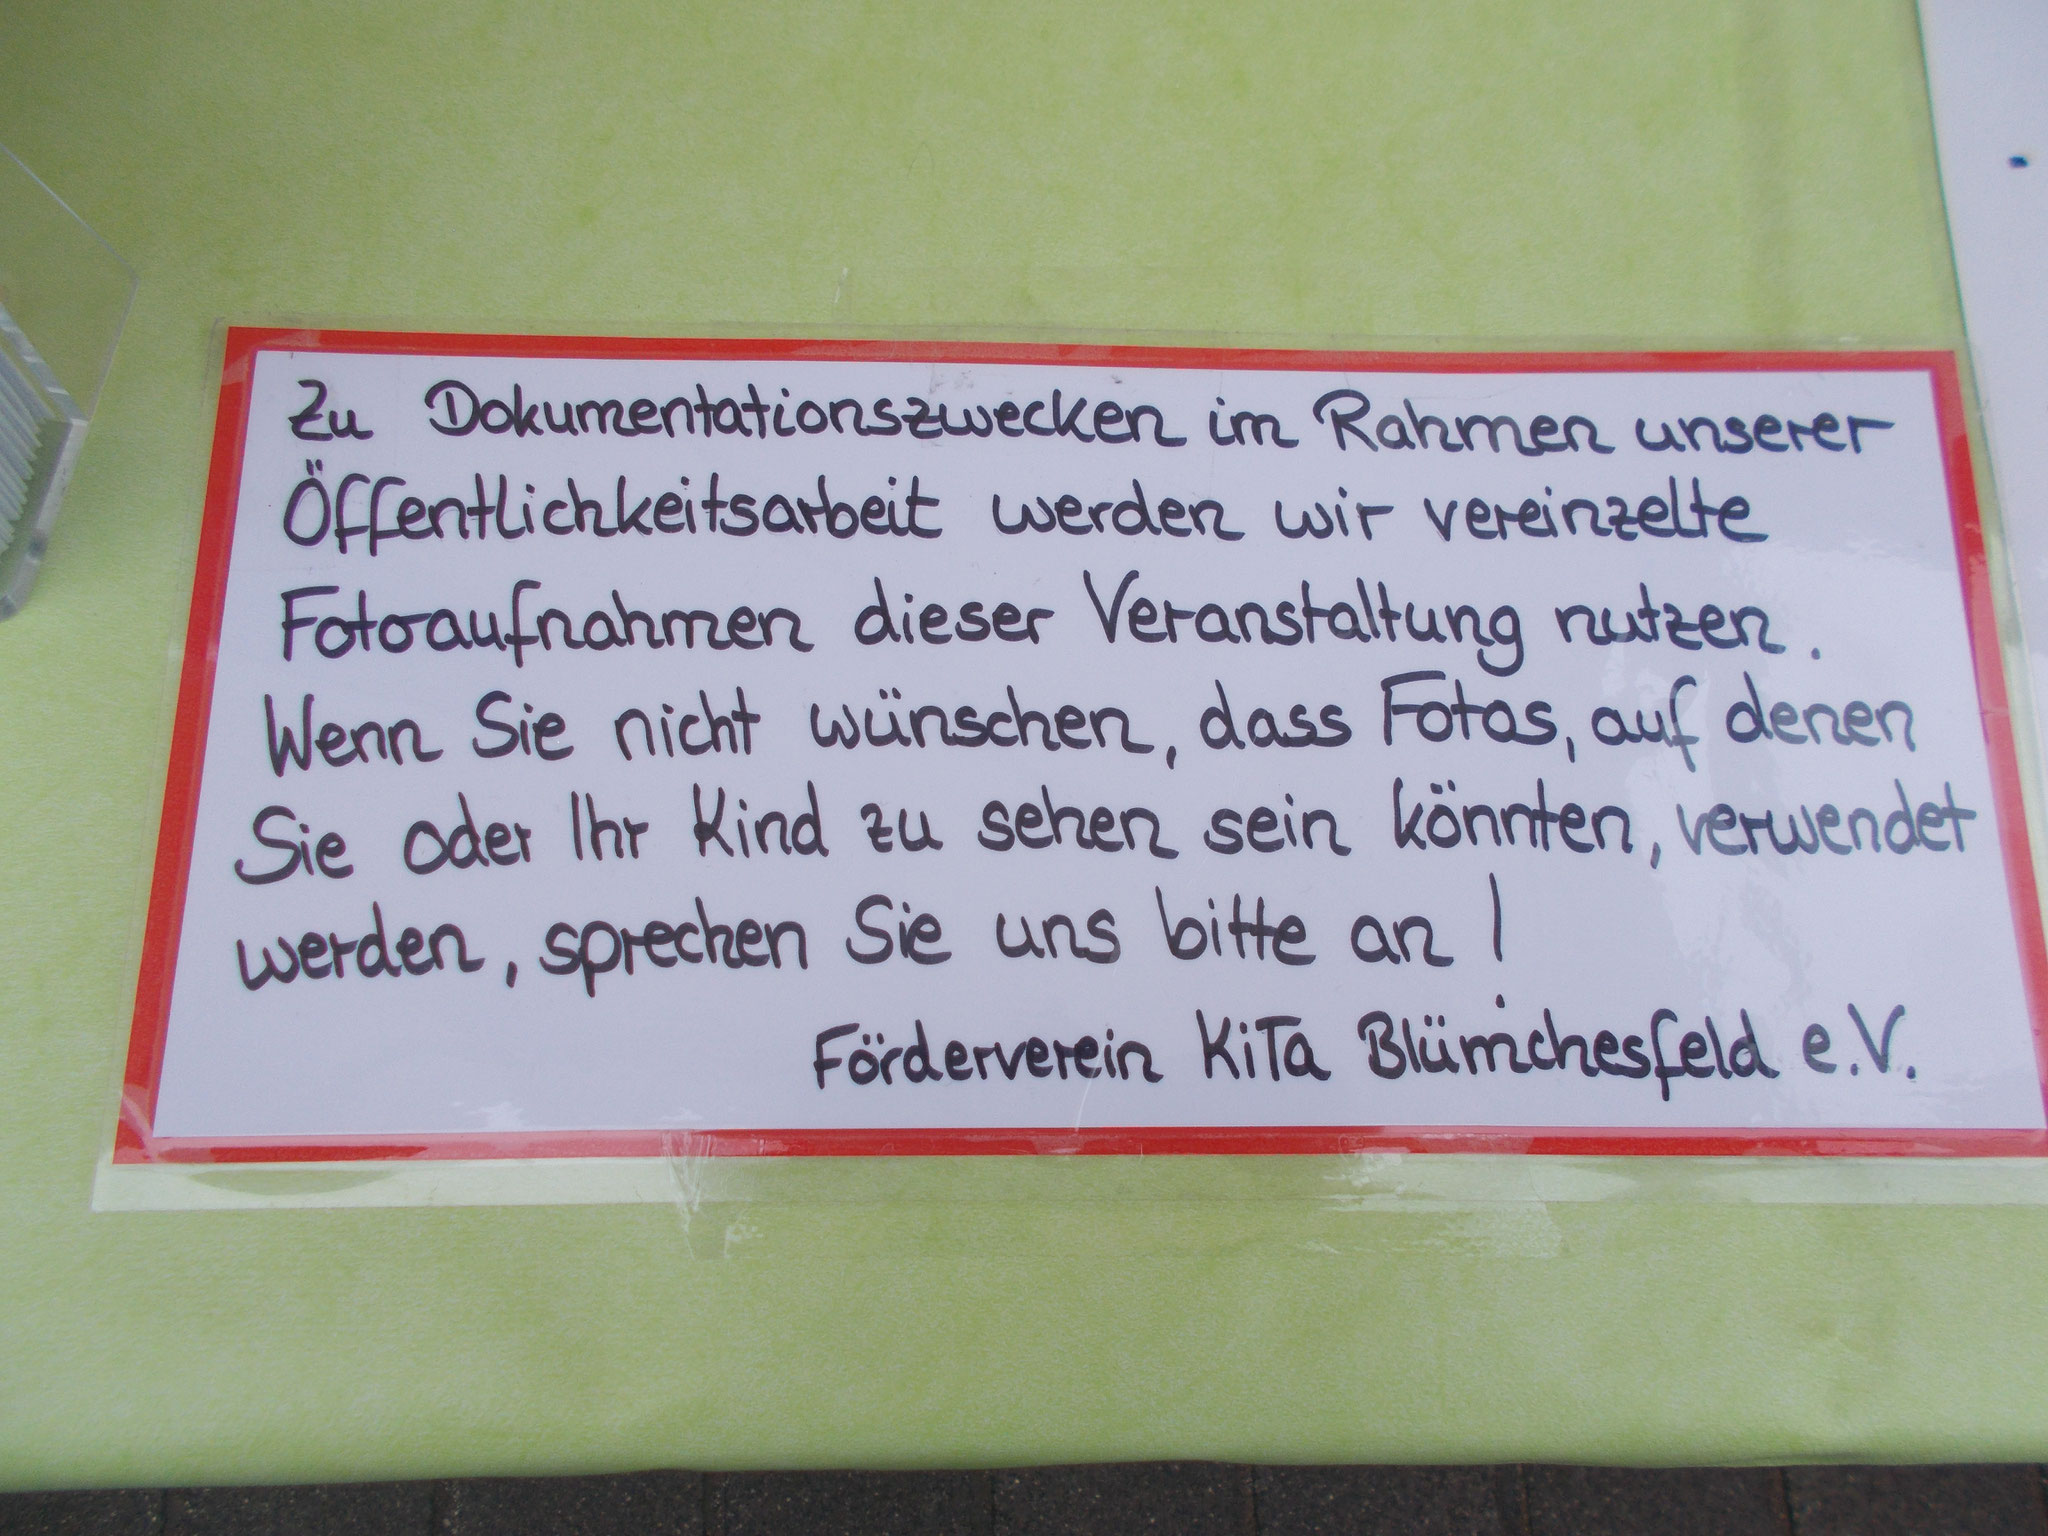 Zu Dokumentationszwecken im Rahmen unserer
Öffentlichkeitsarbeit werden wir vereinzelte
Fotoaufnahmen dieser Veranstaltung nutzen.
Wenn Sie nicht wünschen, dass Fotos, auf denen
Sie oder Ihr Kind zu sehen sein könnten, verwendet
werden, sprechen Sie uns bitte an!
Förderverein KiTa Blümchesfeld e.V.